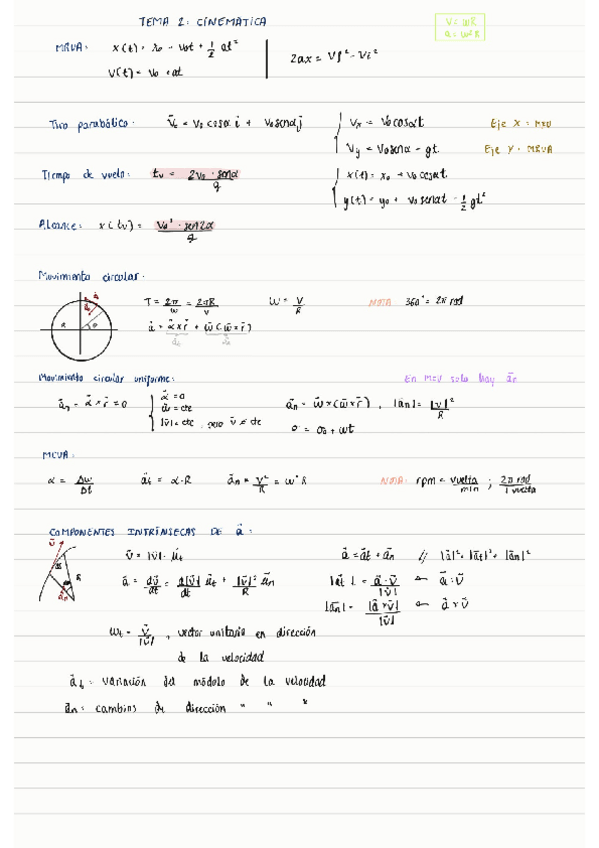 TEMA 2: CINEMÁTICA
V = wR
a = w²R
MRUA: x(t) = x₀ - v₀t + 1/2 at²
2ax = Vf² - Vi²
V(t) = v₀ + at
Tiro parabólico: V⃗t = v₀ cosα i⃗ + v₀ senα j⃗
Vx = v₀ cosα t Eje X = MRU
Vy = v₀ senα - gt Eje Y = MRUA
Tiempo de vuelo: tv = 2v₀ · senα / g
x(t) = x₀ + v₀ cosα t
y(t) = y₀ + v₀ senα t - 1/2 gt²
Alcance: x(tv) = v₀² · sen2α / g
Movimiento circular:
T = 2π/w = 2πR/v w = V/R NOTA 360° = 2π rad
a⃗ = α⃗ × r⃗ + w⃗ (w⃗ × r⃗)
Movimiento circular uniforme: En MCU solo hay a⃗n
α⃗ × r⃗ = 0
α⃗ = 0
|v⃗| = cte, pero v⃗ ≠ cte
a⃗n = w⃗ × (w⃗ × r⃗), |a⃗n| = |v⃗|²/R
θ = θ₀ + wt
MCUA:
α = Δw/Δt a⃗t = α·R a⃗n = v²/R = w²R NOTA: rpm = vuelta/min ; 2π rad/1 vuelta
COMPONENTES INTRÍNSECAS DE a⃗:
v⃗ = |v⃗| · u⃗t a⃗ = a⃗t + a⃗n // |a⃗|² = |a⃗t|² + |a⃗n|²
a⃗ = dv⃗/dt = d|v⃗|/dt u⃗t + |v⃗|²/R u⃗n |a⃗t| = a⃗·v⃗/|v⃗| ← a⃗·v⃗
|a⃗n| = |a⃗×v⃗|/|v⃗| ← a⃗×v⃗
ut = v⃗/|v⃗| , vector unitario en dirección
de la velocidad
a⃗t = variación del módulo de la velocidad
a⃗n = cambios de dirección " " "